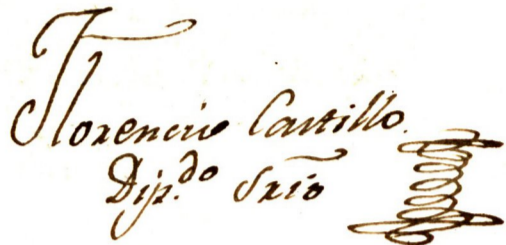 Florencio Castillo.
Dip.do Srio